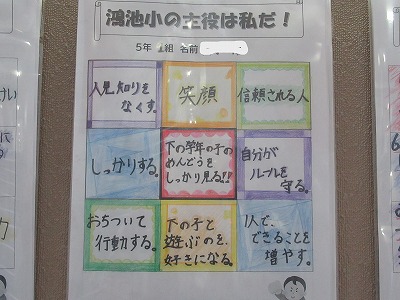 鴻池小の主役は私だ！
5年 組 名前
人見知りを
なくす。
笑顔
信頼される人
しっかりする。
下の学年の子の
めんどうを
しっかり見る!!
自分が
ルールを
守る。
おちついて
行動する。
下の子と
遊ぶのを、
好きになる。
1人で、
できることを
増やす。